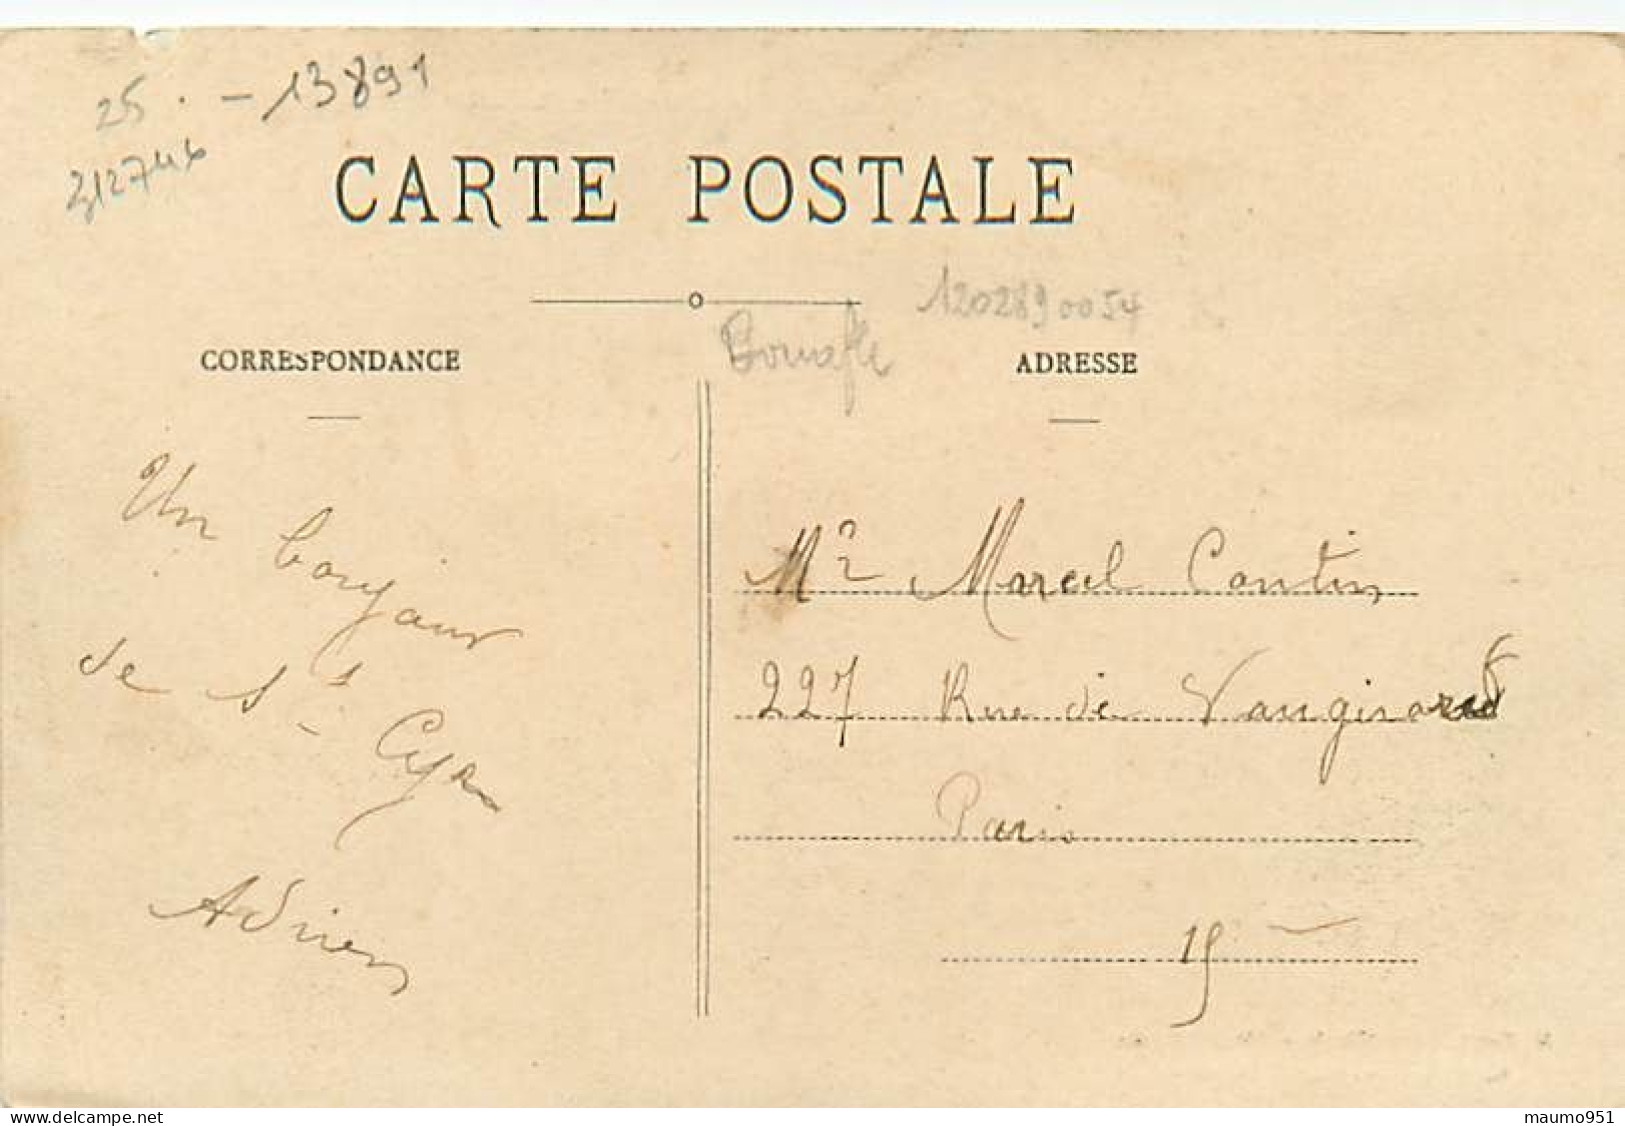 25. - 13891
212746
CARTE POSTALE
1202890054
Bouafle
CORRESPONDANCE
ADRESSE
Un bonjour
de St Cyr
Adrien
Mr Marcel Contin
227 Rue de Vaugirard
Paris
15
delcampe.net
maumo951